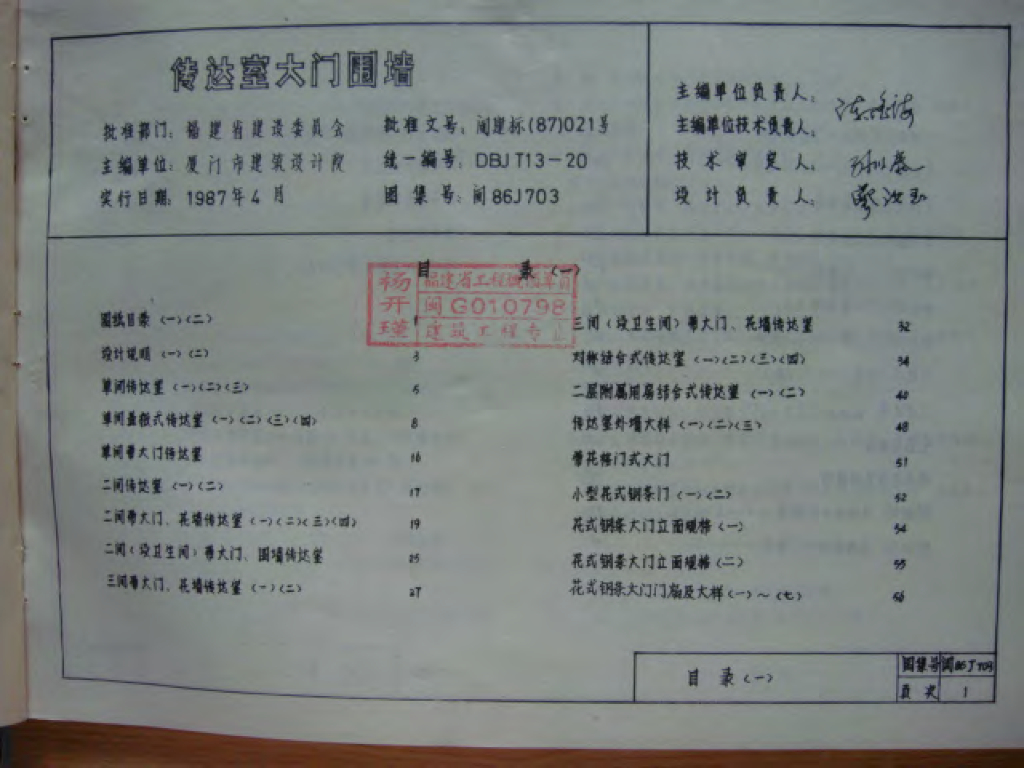 传达室大门围墙
批准部门：福建省建设委员会
主编单位：厦门市建筑设计院
实行日期：1987年4月
批准文号：闽建标(87)021号
统一编号：DBJT13-20
图集号：闽86J703
主编单位负责人：
主编单位技术负责人：
技术审定人：
设计负责人：
目 录（一）
杨开瑾
福建省工程
闽G010798
建筑工程专
图纸目录（一）（二）
设计说明（一）（二） 3
单间传达室（一）（二）（三） 5
单间盒嵌式传达室（一）（二）（三）（四） 8
单间带大门传达室 16
二间传达室（一）（二） 17
二间带大门、花墙传达室（一）（二）（三）（四） 19
二间（设卫生间）带大门、围墙传达室 25
三间带大门、花墙传达室（一）（二） 27
三间（设卫生间）带大门、花墙传达室 32
对称结合式传达室（一）（二）（三）（四） 34
二层附属用房结合式传达室（一）（二） 40
传达室外墙大样（一）（二）（三） 48
带花格门式大门 51
小型花式钢条门（一）（二） 52
花式钢条大门立面规格（一） 54
花式钢条大门立面规格（二） 55
花式钢条大门门扇及大样（一）～（七） 56
目 录（一）
图集号 闽86J703
页次 1